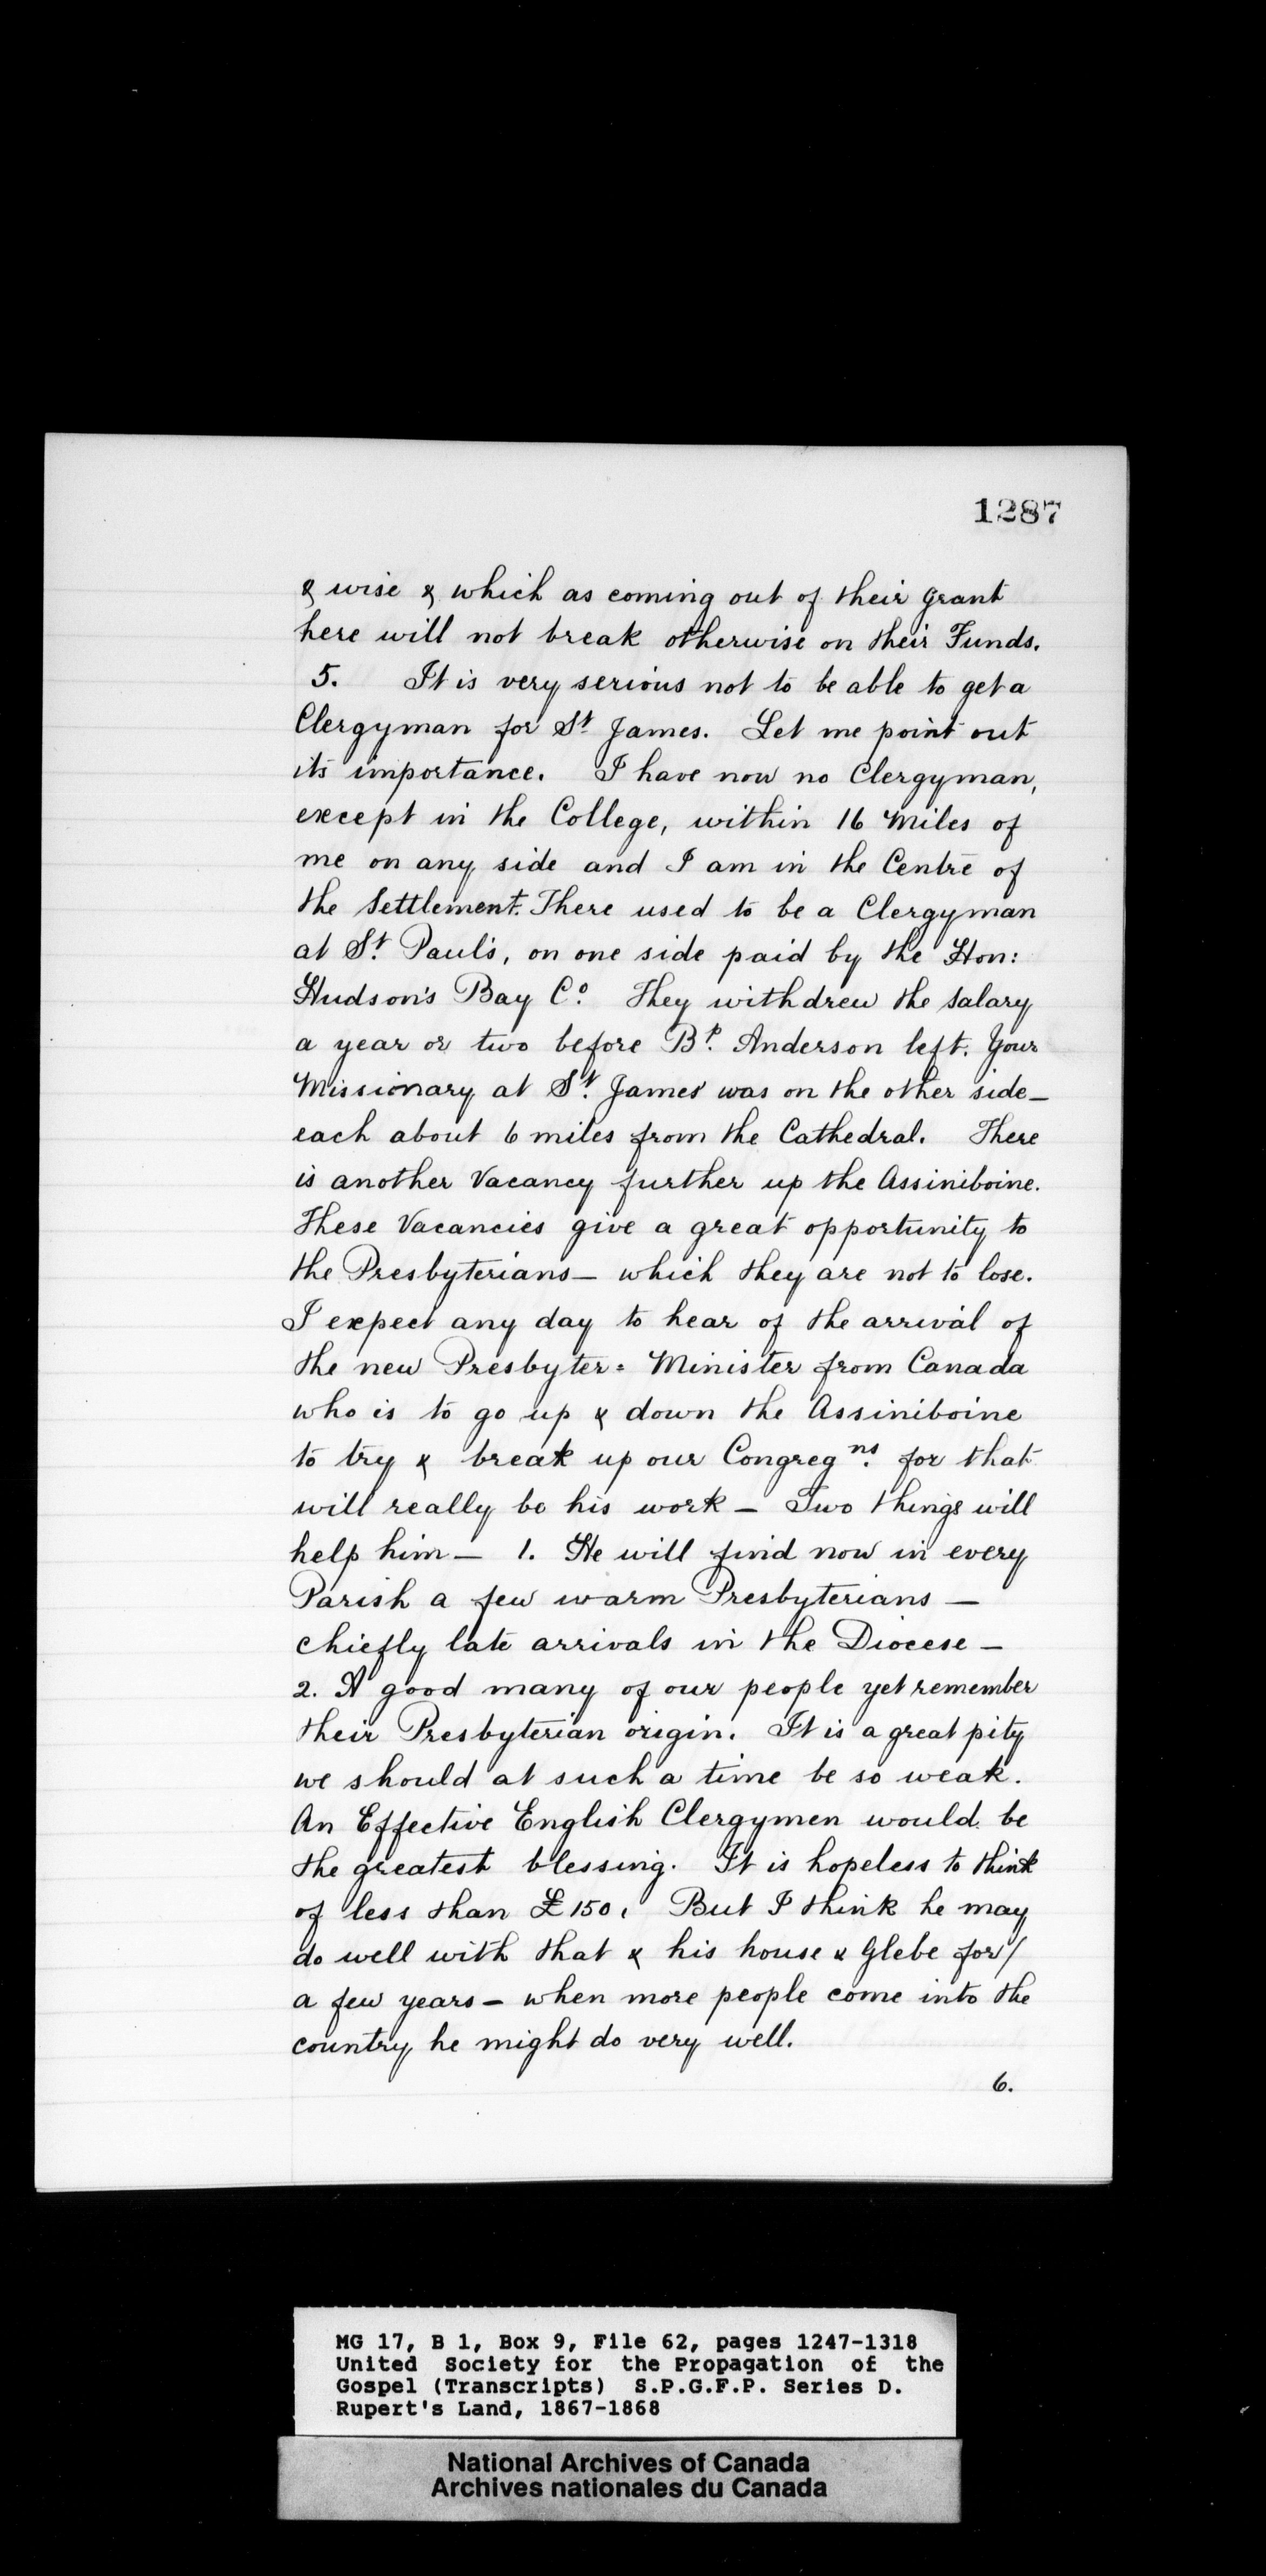 1287
& wise & which as coming out of their grant
here will not break otherwise on their Funds.
5. It is very serious not to be able to get a
Clergyman for St. James. Let me point out
its importance. I have now no Clergyman,
except in the College, within 16 Miles of
me on any side and I am in the Centre of
the Settlement. There used to be a Clergyman
at St. Paul's, on one side paid by the Hon:
Hudson's Bay Co. They withdrew the salary
a year or two before Bp. Anderson left. Your
Missionary at St. James' was on the other side—
each about 6 miles from the Cathedral. There
is another Vacancy further up the Assiniboine.
These Vacancies give a great opportunity to
the Presbyterians— which they are not to lose.
I expect any day to hear of the arrival of
the new Presbyter= Minister from Canada
who is to go up & down the Assiniboine
to try & break up our Congregns. for that
will really be his work — Two things will
help him — 1. He will find now in every
Parish a few warm Presbyterians —
chiefly late arrivals in the Diocese —
2. A good many of our people yet remember
their Presbyterian origin. It is a great pity
we should at such a time be so weak.
An Effective English Clergymen would be
the greatest blessing. It is hopeless to think
of less than £150. But I think he may
do well with that & his house & Glebe for/
a few years — when more people come into the
country he might do very well.
6.
MG 17, B 1, Box 9, File 62, pages 1247-1318
United Society for the Propagation of the
Gospel (Transcripts) S.P.G.F.P. Series D.
Rupert's Land, 1867-1868
National Archives of Canada
Archives nationales du Canada